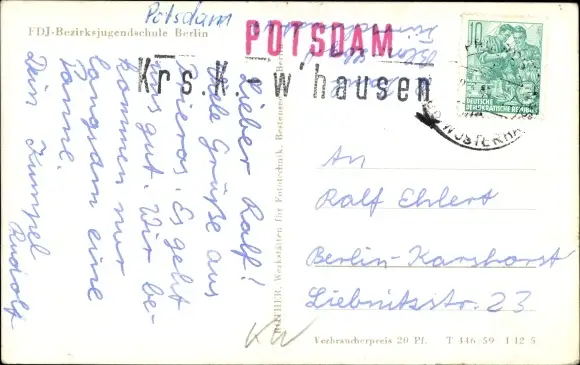 Potsdam
FDJ-Bezirksjugendschule Berlin
POTSDAM
Krs. K.-W'hausen
10
DEUTSCHE
DEMOKRATISCHE REPUBLIK
WÜSTERHA
Lieber Ralf!
Viele Grüße aus
Prieros. Es geht
uns gut. Wir be-
kommen nur
langsam eine
Panne.
Dein Kumpel
Rudolf
Werkstätten für Fototechnik,
An
Ralf Ehlert
Berlin-Karlshorst
Liebnitzstr. 23
KW
Verbraucherpreis 20 Pf. T 446/59 I 12 5